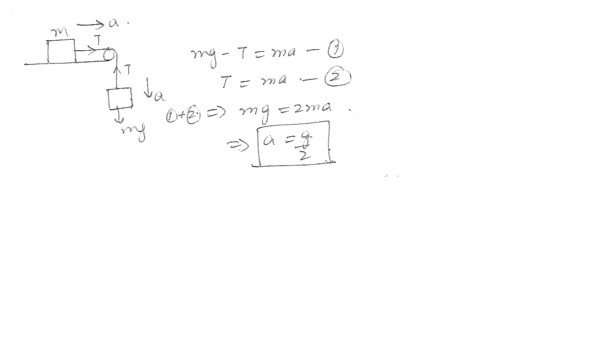 m → a.
T
T
↓a
mg
mg - T = ma - ①
T = ma - ②
①+② => mg = 2ma.
=> a = g/2